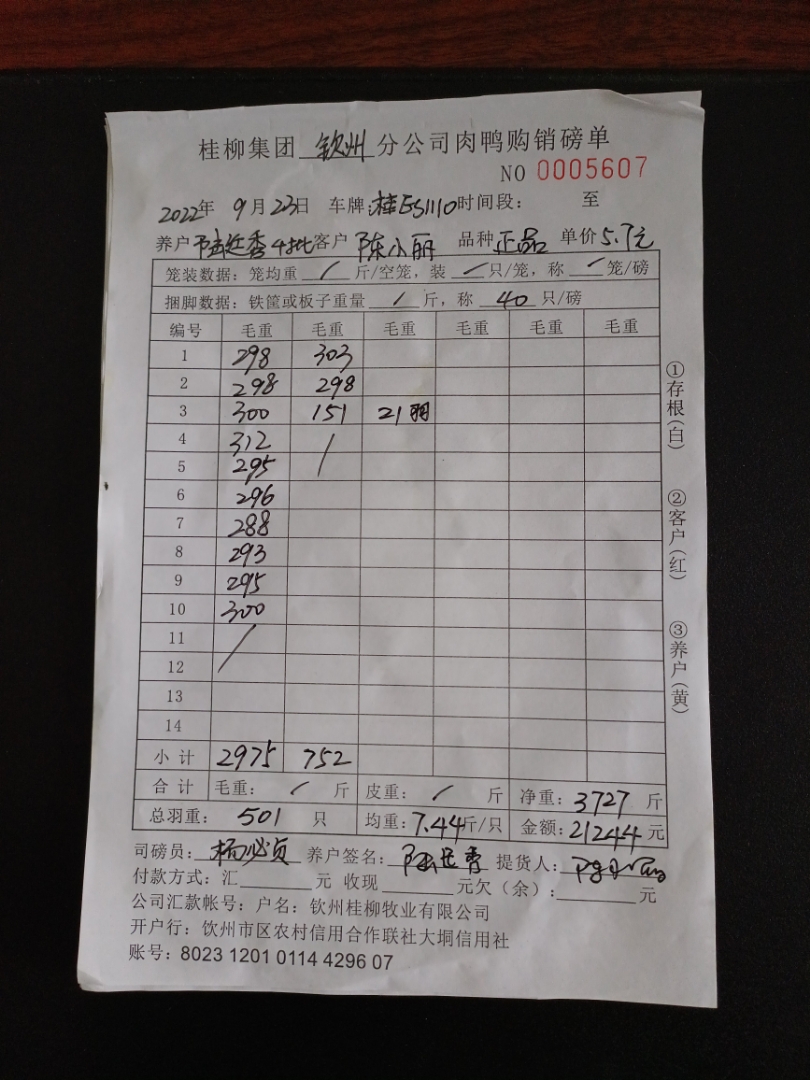 桂柳集团 钦州 分公司肉鸭购销磅单
NO 0005607
2022年 9月23日 车牌:桂ES1110 时间段: 至
养户 4批 客户 陈小丽 品种 正品 单价 5.7元
笼装数据: 笼均重 / 斤/空笼, 装 / 只/笼, 称 / 笼/磅
捆脚数据: 铁筐或板子重量 / 斤, 称 40 只/磅
编号 毛重 毛重 毛重 毛重 毛重 毛重
1 298 303
2 298 298
3 300 151 21羽
4 312 /
5 295
6 296
7 288
8 293
9 295
10 300
11 /
12
13
14
小计 2975 752
合计 毛重: / 斤 皮重: / 斤 净重: 3727 斤
总羽重: 501 只 均重: 7.44斤/只 金额: 21244 元
司磅员: 养户签名: 提货人:
付款方式: 汇 元 收现 元欠(余): 元
公司汇款帐号: 户名: 钦州桂柳牧业有限公司
开户行: 钦州市区农村信用合作联社大垌信用社
账号: 8023 1201 0114 4296 07
①存根(白)
②客户(红)
③养户(黄)